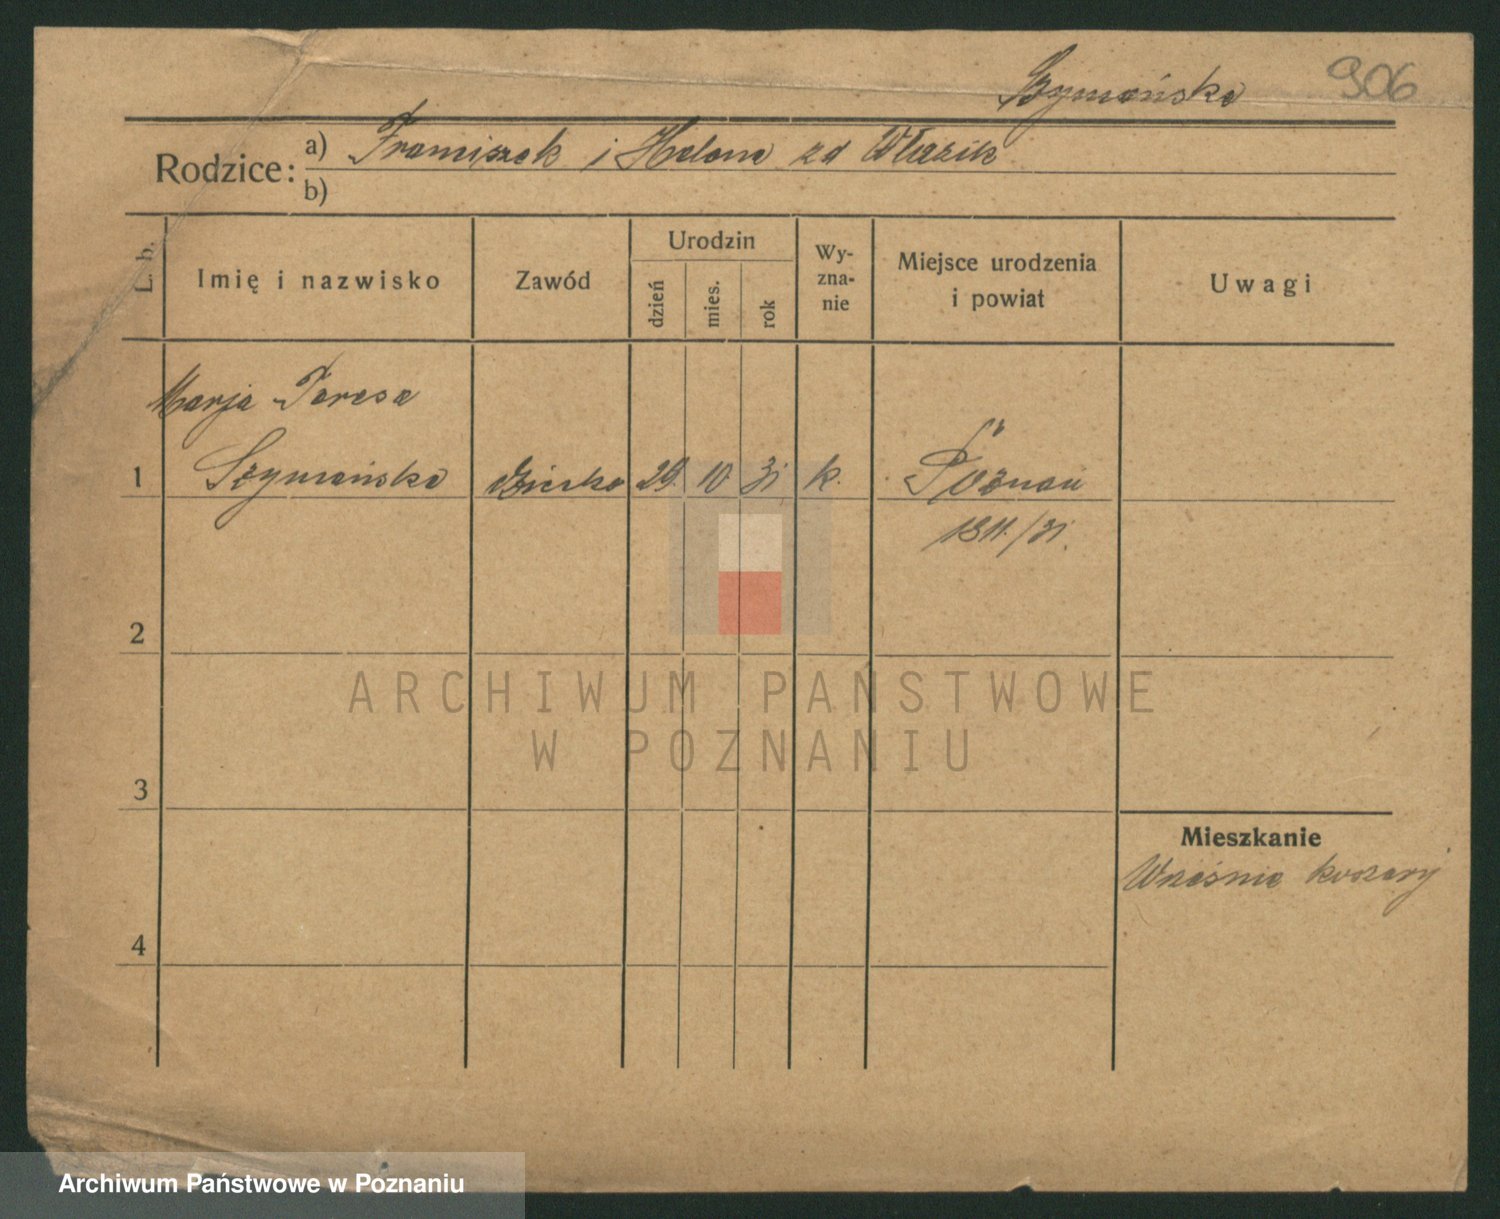 Szymańska 906
Rodzice: a) Franciszek i Helena zd Włazik
b)
L. b. Imię i nazwisko Zawód Urodzin dzień mies. rok Wy-zna-nie Miejsce urodzenia i powiat Uwagi
Marja Teresa
1 Szymańska dziecko 29. 10 31 k. Poznań
1811/31.
2
ARCHIWUM PAŃSTWOWE
W POZNANIU
3
Mieszkanie
Września koszary
4
Archiwum Państwowe w Poznaniu